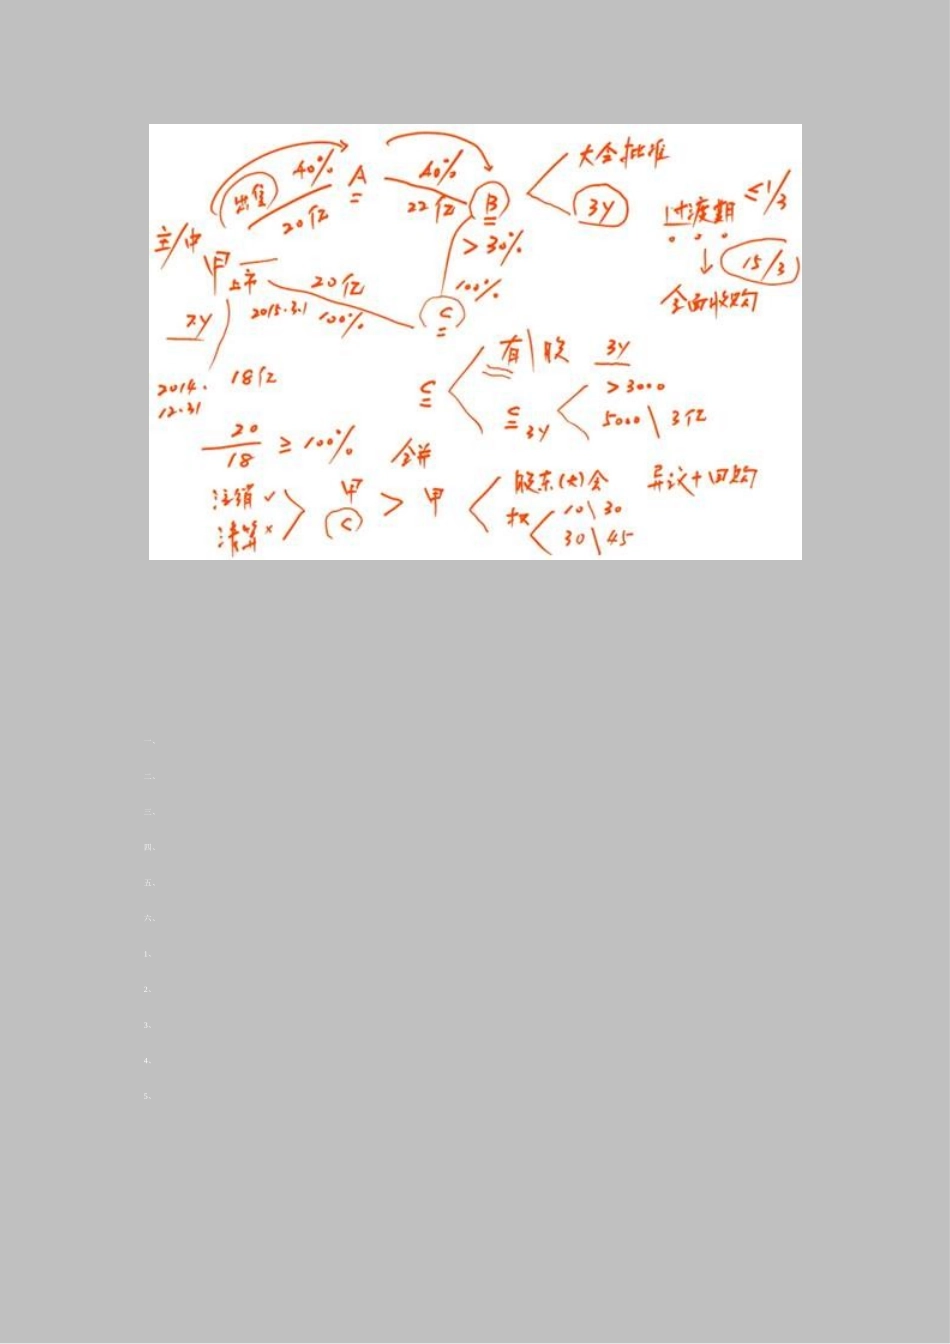 40% A 40% 大会批准
出售 20亿 22亿 B 3Y 过渡期 ≤1/3
主/中 >30% 15/3
甲上市 20亿 100% 全面收购
2015.3.1 100% C
有\股 3Y
2014. 18亿 C >3000
12.31 C 3Y 5000\3亿
20/18 ≥ 100% 合并
注销✓ 甲 > 甲 股东(大)会 异议+回购
清算× C 10\30
30\45
一、
二、
三、
四、
五、
六、
1.
2.
3.
4.
5.